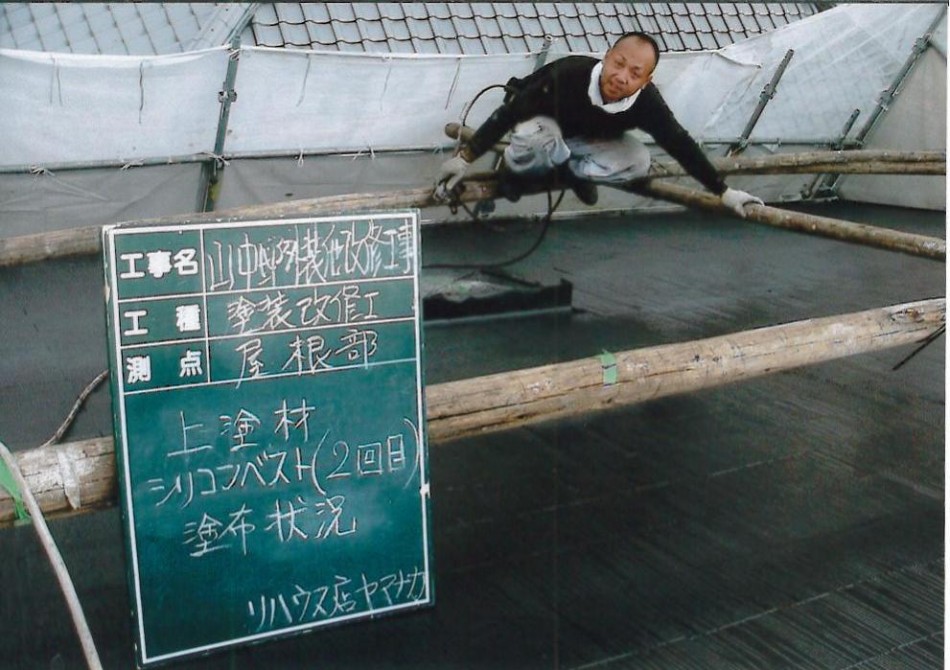 工事名 山中邸外装他改修工事
工種 塗装改修工
測点 屋根部
上塗材
シリコンベスト(2回目)
塗布状況
リハウス店ヤマナカ